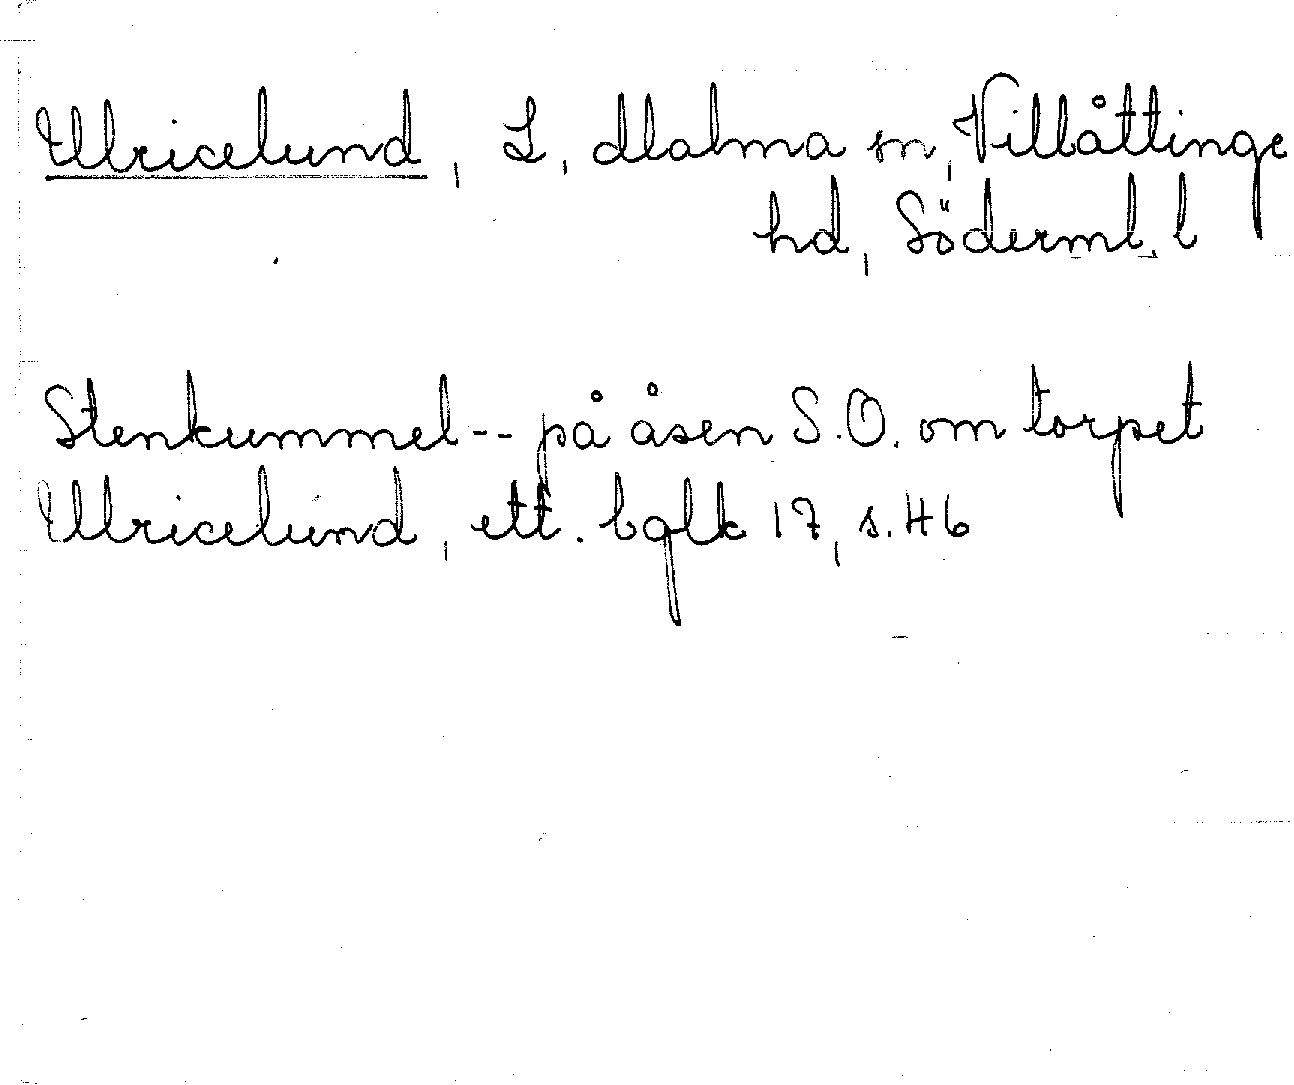 Ulricelund, L, Malma sn, Villåttinge
hd, Söderml. l
Stenkummel -- på åsen S.O. om torpet
Ulricelund, ett. bglk 17, s. 46